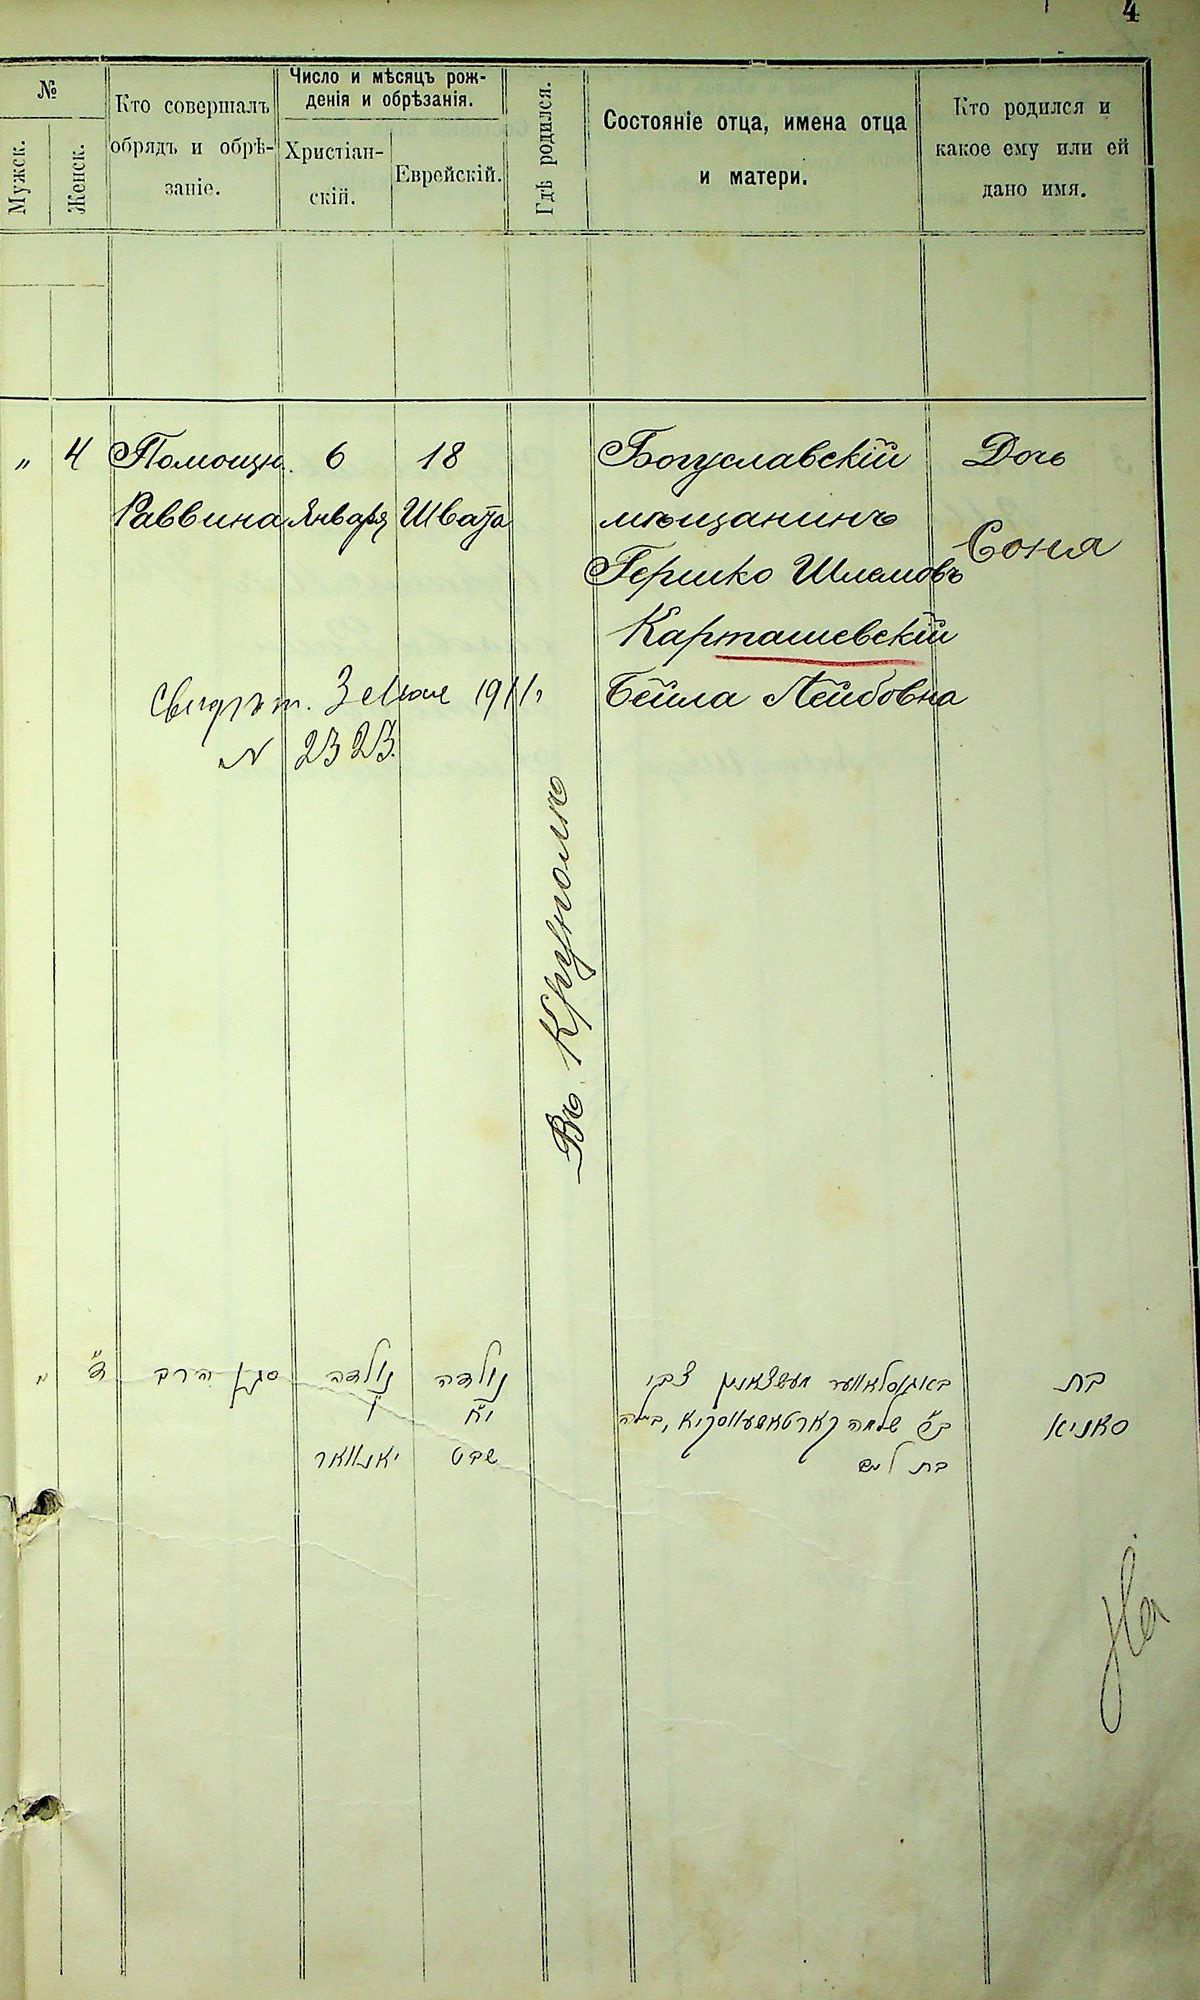 4
№
Мужск.
Женск.
Кто совершалъ
обрядъ и обрѣ-
заніе.
Число и мѣсяцъ рож-
денія и обрѣзанія.
Христіан-
скій.
Еврейскій.
Гдѣ родился.
Состояніе отца, имена отца
и матери.
Кто родился и
какое ему или ей
дано имя.
„ 4 Помощн. 6 18 Богуславскій Дочь
Раввина Января Швата мѣщанинъ
Соня
Гершко Шлемовъ
Карташевскій
Бейла Лейбовна
Свидѣт. 3 Мая 1911 г.
№ 2323.
Въ
בת באגוסלאווער מעשצאנין צבי נולדה נולדה סגן הרב ד״ „
סאניא ב״ר שלמה קארטאשעווסקיא, בילה י״ח ו׳
בת שבט יאנוואר